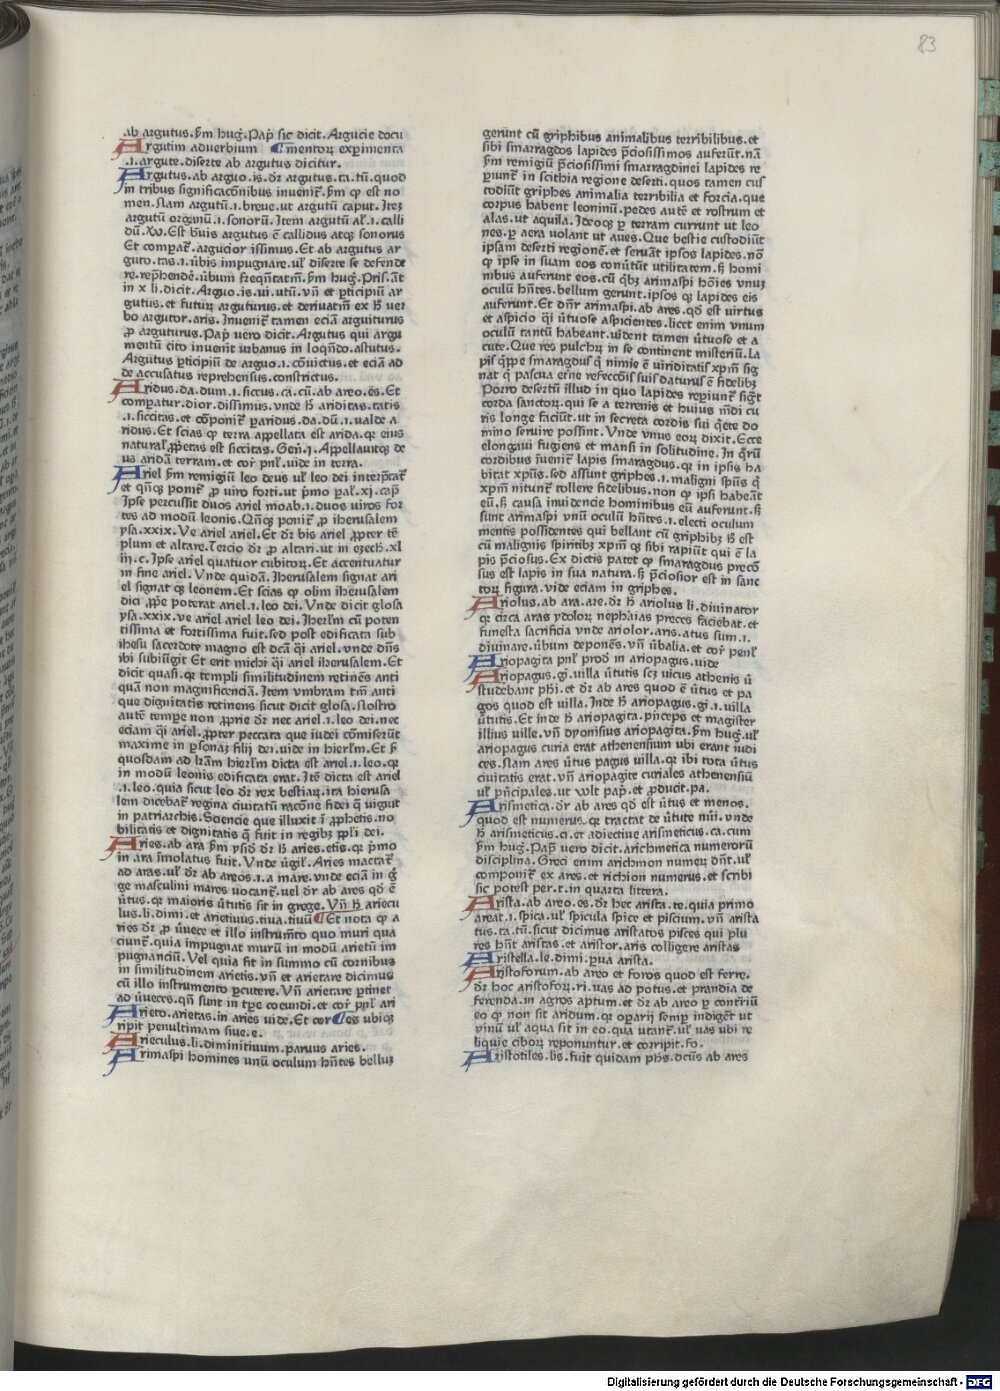 83
ab argutus. s̄m hug̛. Pap̄ sic dicit. Argucie docu
Argutim aduerbium ¶ mentoꝝ exṗimenta
.i. argute. diserte ab argutus dicitur.
Argutus. ab arguo. is. dr̄ argutus. ta. tū. quod
in tribus significac̄onibus inueniť. s̄m ꝙ est no
men. Nam argutū .i. breue. ut argutū caput. Iteꝫ
argutū organū .i. sonorū. Item argutū al̄ .i. calli
dū.
Et compať. argucior issimus. Et ab argutus ar
guto. tas .i. v̄bis impugnare. ul̄ diserte se defende
re. rep̄hendē. v̄bum freq̄ntatiū. s̄m hug̛. Pris. āt
in x li. dicit. Arguo. is. ui. utū. vn̄ et p̱ticipiū ar
gutus. et futuꝝ arguturus. et deriuatiū ex h̄ uer
bo argutor. aris. Inueniť tamen eciā arguiturus
ꝓ arguturus. Pap̄ uero dicit. Argutus qui argu
mentū cito inuenit urbanus in loqn̄do. astutus.
Argutus p̱ticipiū de arguo .i. cōuictus. et eciā ad
de accusatus reprehensus. constrictus.
Aridus. da. dum .i. siccus. ca. cū. ab areo. es. Et
comp̱atur. dior. dissimus. vnde h̄ ariditas. tatis
.i. siccitas. et cōponiť p̱aridus. da. dū .i. ualde a
ridus. Et scias ꝙ terra appellata est arida. qꝛ eius
natural̄ ꝓp̄etas est siccitas. Geñ. j. Appellauitqꝫ de
us aridā terram. et cor̄ pnl̄. uide in terra.
Ariel s̄m remigiū leo deus ul̄ leo dei interp̄tať
et qn̄qꝫ poniť ꝓ uiro forti. ut p̄mo pal̄. xj. cap̄
Ipse percussit duos ariel moab .i. duos uiros for
tes ad modū leonis. Qn̄qꝫ poniť ꝓ iherusalem
ysa. xxix. Ve ariel ariel. Et dr̄ bis ariel ꝓpter tē
plum et altare. Tercio dr̄ ꝓ altari. ut in ezech̄. xl
iij. c. Ipse ariel quatuor cubitoꝝ. Et accentuatur
in fine ariel. Vnde quidā. Iherusalem signat ari
el signat qꝫ leonem. Et scias ꝙ olim iherusalem
dici ꝓp̄e poterat ariel .i. leo dei. Vnde dicit glosa
ysa. xxix. ve ariel ariel leo dei. Iherl̄m cū poten
tissima et fortissima fuit. sed post edificata sub
ihesu sacerdote magno est dc̄a q̄i ariel. vnde dn̄s
ibi subiūgit Et erit michi q̄i ariel iherusalem. Et
dicit quasi. qꝛ templi similitudinem retinēs anti
quā non magnificenciā. Item vmbram tm̄ anti
que dignitatis retinens sicut dicit glosa. Nostro
autē tempe non ꝓprie dr̄ nec ariel .i. leo dei. nec
eciam q̄i ariel. ꝓpter peccata que iudei cōmiserūt
maxime in p̱sonaꝫ filij dei. uide in hierl̄m. Et s̄
quosdam ad lr̄am hierl̄m dicta est ariel .i. leo. qꝛ
in modū leonis edificata erat. Itē dicta est ariel
.i. leo. quia sicut leo dr̄ rex bestiaꝝ. ita hierusa
lem dicebať regina ciuitatū racōne fidei q̄ uiguit
in patriarchis. Sciencie que illuxit ī ꝓphetis. no
bilitatis et dignitatis q̄ fuit in regibꝫ ppl̄i dei.
Aries. ab ara s̄m ysid̄ dr̄ h̄ aries. etis. qꝛ p̄mo
in ara īmolatus fuit. Vnde v̄gil̄. Aries mactať
ad aras. ul̄ dr̄ ab areos .i. a mare. vnde eciā in ḡ
ge masculini mares uocanť. vel dr̄ ab ares qd̄ ē
v̄tus. qꝛ maioris v̄tutis sit in grege. Vn̄ h̄ ariecu
lus. li. dimi. et arietiuus. tiua. tiuū ¶ Et nota ꝙ a
ries dr̄ ꝓ v̄uece et illo instrum̄to quo muri qua
ciunť. quia impugnat murū in modū arietū im
pugnanciū. Vel quia fit in summo cū cornibus
in similitudinem arietis. vn̄ et arietare dicimus
cū illo instrumento p̱cutere. Vn̄ arietare p̱tinet
ad v̄ueces. qn̄ sunt in tp̄e coeundi. et cor̄ pnl̄ ari
Arieto. arietas. in aries uide. Et cor ¶ es ubiqꝫ
ripit penultimam siue. e.
Arieculus. li. diminitiuum. paruus aries.
Arimaspi homines unū oculum hn̄tes belluꝫ
gerunt cū griphibus animalibus terribilibus. et
sibi smaragdos lapides p̄ciosissimos auferūt. nā
s̄m remigiū p̄ciosissimi smaragdinei lapides re
p̱iunť in scithia regione deserti. quos tamen cus
todiūt griphes animalia terribilia et forcia. que
corpus habent leoninū. pedes autē et rostrum et
alas. ut aquila. Ideoqꝫ p̱ terram currunt ut leo
nes. p̱ aera uolant ut aues. Que bestie custodiūt
ipsam deserti regionē. et seruāt ipsos lapides. nō
ꝙ ipse in suam eos conūtūt utilitatem. sꝫ homi
nibus auferunt eos. cū qͥbꝫ arimaspi hōies vnuꝫ
oculū hn̄tes. bellum gerunt. ipsos qꝫ lapides eis
auferunt. Et dn̄r arimaspi. ab ares. qd̄ est uirtus
et aspicio q̄i v̄tuose aspicientes. licet enim vnum
oculū tantū habeant. uident tamen v̄tuose et a
cute. Que res pulchꝝ in se continent misteriū. La
pis q̄ppe smaragdus q̄ nimie ē uiriditatis xp̄m sig
nat q̄ pascua et̄ne refecc̄ois suis daturus ē fidelibꝫ
Porro desertū illud in quo lapides rep̱iunť. sigť
corda sanctoꝝ. qui se a terrenis et huius m̄di cu
ris longe faciūt. ut in secreta cordis sui q̄ete do
mino seruire possint. Vnde vnus eoꝝ dixit. Ecce
elongaui fugiens et mansi in solitudine. In q̄rū
cordibus īueniť lapis smaragdus. qꝛ in ipsis ha
bitat xp̄us. sed assunt griphes .i. maligni sp̄us q̄
xp̄m nitunť tollere fidelibus. non ꝙ ipsi habeāt
eū. sꝫ causa inuidencie hominibus eū auferunt. sꝫ
sunt arimaspi vnū oculū hn̄tes .i. electi oculum
mentis possidentes qui bellant cū griphibꝫ h̄ est
cū malignis spiritibꝫ xp̄m qꝫ sibi rapiūt qui ē la
pis p̄ciosus. Ex dictis patet ꝙ smaragdus precō
sus est lapis in sua natura. sꝫ p̄ciosior est in sanc
toꝝ figura. vide eciam in griphes.
Ariolus. ab ara. are. dr̄ h̄ ariolus li. diuinator
qꝛ circa aras ydoloꝝ nepharias preces faciebat. et
funesta sacrificia vnde ariolor. aris. atus sum .i.
diuinare. v̄bum deponēs. vn̄ v̄balia. et cor̄ penl̄
Ariopagita pnl̄ prod̄ in ariopagus. uide
Ariopagus. gi. uilla v̄tutis seꝫ uicus athenis ū
studebant ph̄i. et dr̄ ab ares quod ē v̄tus et pa
gos quod est uilla. Inde h̄ ariopagus. gi .i. uilla
v̄tutis. Et inde h̄ ariopagita. p̄nceps et magister
illius uille. vn̄ dyonisius ariopagita. s̄m hug̛. ul̄
ariopagus curia erat athenensium ubi erant iudi
ces. Nam ares v̄tus pagus uilla. qꝛ ibi tota v̄tus
ciuitatis erat. vn̄ ariopagite curiales athenensiū
ul̄ p̄ncipales. ut volt pap̄. et ꝓducit. pa.
Arismetica. dr̄ ab ares qd̄ est v̄tus et menos.
quod est numerus. qꝛ tractat de v̄tute nūi. vnde
h̄ arismeticus. ci. et adiectiue arismeticus. ca. cum
s̄m hug̛. Pap̄ vero dicit. arichmetica numerorū
disciplina. Greci enim arichmon numeꝝ dn̄t. ul̄
componiť ex ares. et richion numerus. et scribi
sic potest per. t. in quarta littera.
Arista. ab areo. es. dr̄ hec arista. te. quia primo
areat .i. spica. ul̄ spicula spice et piscium. vn̄ arista
tus. ta. tū. sicut dicimus aristatos pisces qui plu
res hn̄t aristas. et aristor. aris colligere aristas
Aristella. le. dimi. p̱ua arista.
Aristoforum. ab areo et foros quod est ferre.
dr̄ hoc aristoforꝝ. ri. uas ad potus. et prandia de
ferenda. in agros aptum. et dr̄ ab areo p̱ cont̄riū
eo ꝙ non sit aridum. qꝛ op̱arij semp̱ indigēt ut
vinū ul̄ aqua sit in eo. qua utanť. ul̄ uas ubi re
liquie ciboꝝ reponuntur. et corripit. fo.
Aristotiles. lis. fuit quidam ph̄s. dc̄us ab ares
Digitalisierung gefördert durch die Deutsche Forschungsgemeinschaft - DFG